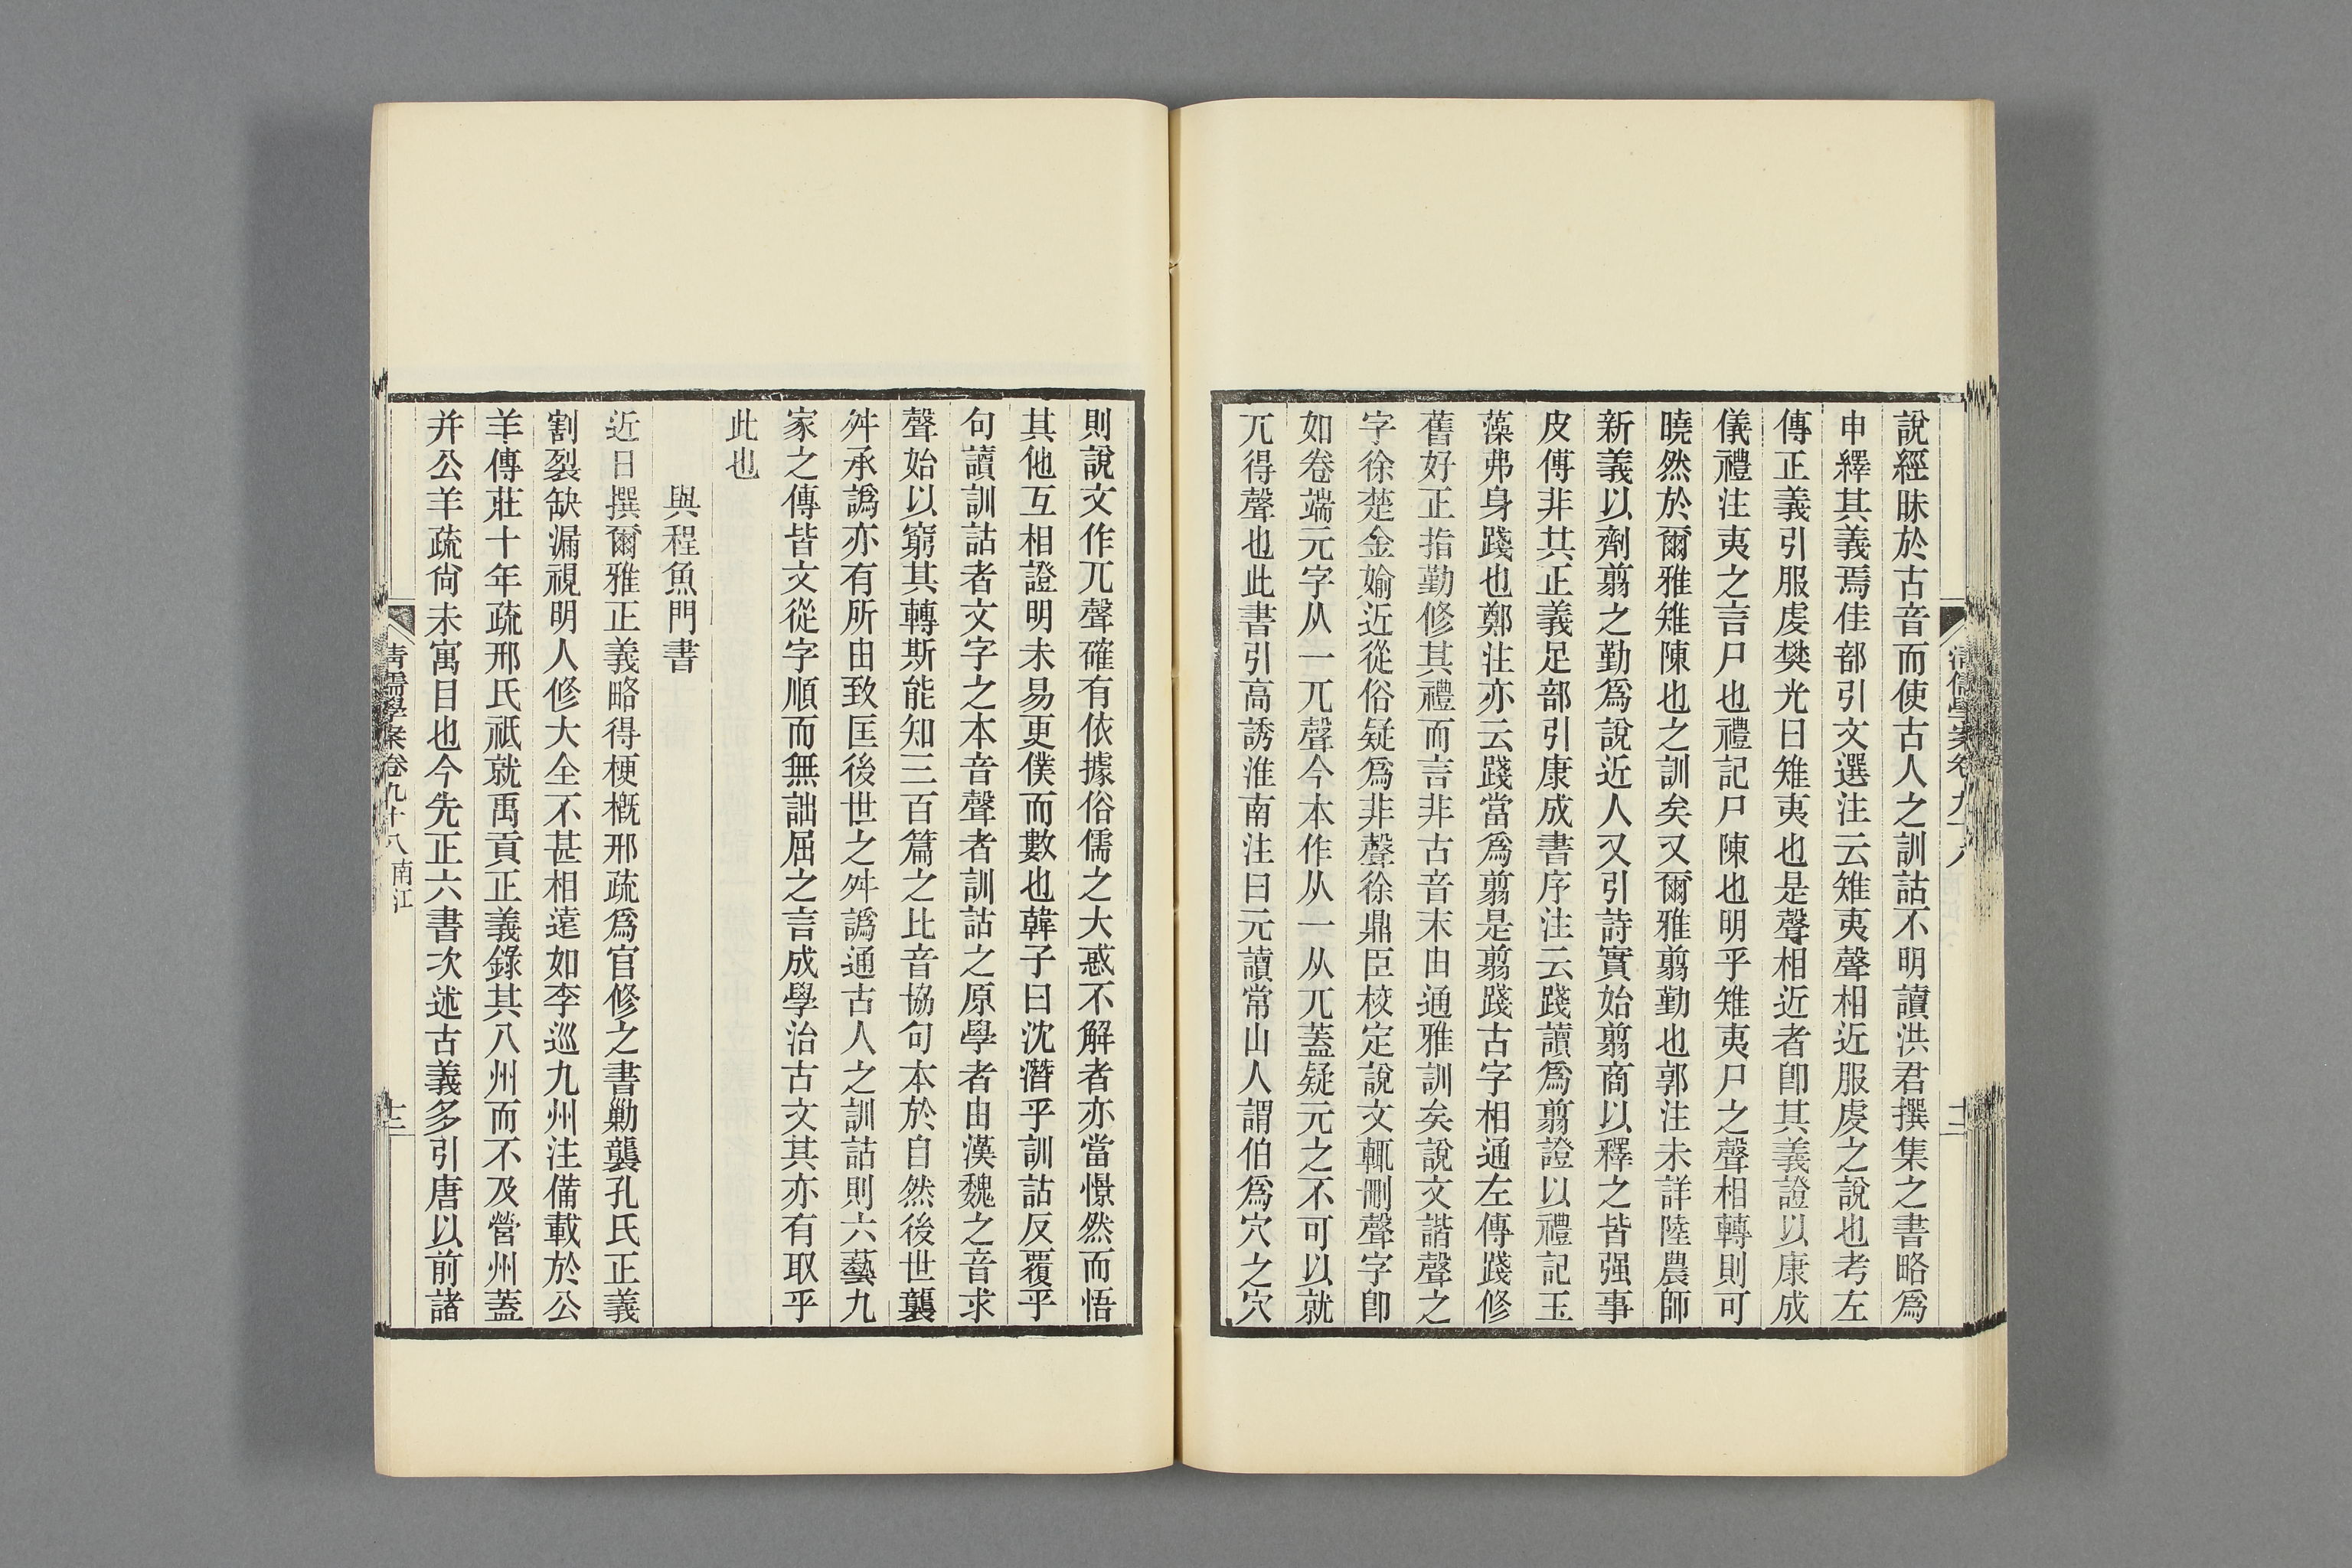 說經昧於古音而使古人之訓詁不明讀洪君撰集之書略爲
申繹其義焉佳部引文選注云雉夷聲相近服虔之說也考左
傳正義引服虔樊光曰雉夷也是聲相近者卽其義證以康成
儀禮注夷之言尸也禮記尸陳也明乎雉夷尸之聲相轉則可
曉然於爾雅雉陳也之訓矣又爾雅翦勤也郭注未詳陸農師
新義以劑翦之勤爲說近人又引詩實始翦商以釋之皆强事
皮傅非其正義足部引康成書序注云踐讀爲翦證以禮記玉
藻弗身踐也鄭注亦云踐當爲翦是翦踐古字相通左傳踐修
舊好正指勤修其禮而言非古音末由通雅訓矣說文諧聲之
字徐楚金婾近從俗疑爲非聲徐鼎臣校定說文輒刪聲字卽
如卷端元字从一兀聲今本作从一从兀蓋疑元之不可以就
兀得聲也此書引高誘淮南注曰元讀常山人謂伯爲穴之穴
清儒學案卷九十八
十二
則說文作兀聲確有依據俗儒之大惑不解者亦當憬然而悟
其他互相證明未易更僕而數也韓子曰沈潛乎訓詁反覆乎
句讀訓詁者文字之本音聲者訓詁之原學者由漢魏之音求
聲始以窮其轉斯能知三百篇之比音協句本於自然後世襲
舛承譌亦有所由致匡後世之舛譌通古人之訓詁則六藝九
家之傳皆文從字順而無詘屈之言成學治古文其亦有取乎
此也
與程魚門書
近日撰爾雅正義略得梗槪邢疏爲官修之書勦襲孔氏正義
割裂缺漏視明人修大全不甚相遠如李巡九州注備載於公
羊傳莊十年疏邢氏祇就禹貢正義錄其八州而不及營州蓋
并公羊疏尙未寓目也今先正六書次述古義多引唐以前諸
清儒學案卷九十八 南江
十三